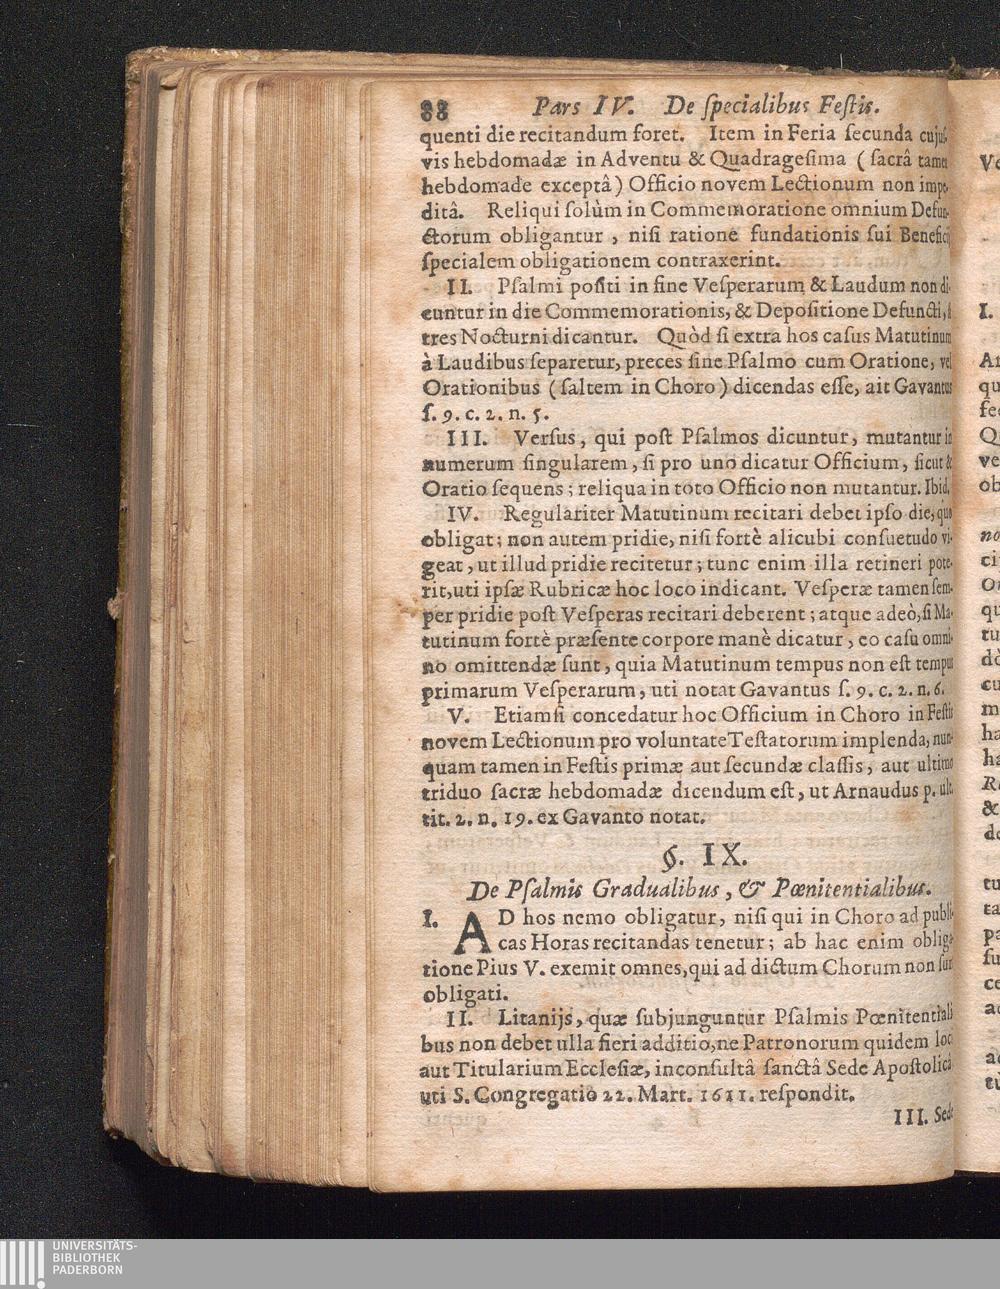 88 Pars IV. De ſpecialibus Feſtis.
quenti die recitandum foret. Item in Feria ſecunda cujuſ-
vis hebdomadæ in Adventu & Quadrageſima (ſacrâ tamen
hebdomade exceptâ) Officio novem Lectionum non impe-
ditâ. Reliqui ſolùm in Commemoratione omnium Defun-
ctorum obligantur, niſi ratione fundationis ſui Beneficij
ſpecialem obligationem contraxerint.
II. Pſalmi poſiti in fine Veſperarum & Laudum non di-
cuntur in die Commemorationis, & Depoſitione Defuncti, ſi
tres Nocturni dicantur. Quòd ſi extra hos caſus Matutinum
à Laudibus ſeparetur, preces ſine Pſalmo cum Oratione, vel
Orationibus (ſaltem in Choro) dicendas eſſe, ait Gavantus
ſ. 9. c. 2. n. 5.
III. Verſus, qui poſt Pſalmos dicuntur, mutantur in
numerum ſingularem, ſi pro uno dicatur Officium, ſicut &
Oratio ſequens; reliqua in toto Officio non mutantur. Ibid.
IV. Regulariter Matutinum recitari debet ipſo die, quo
obligat; non autem pridie, niſi fortè alicubi conſuetudo vi-
geat, ut illud pridie recitetur; tunc enim illa retineri pote-
rit, uti ipſæ Rubricæ hoc loco indicant. Veſperæ tamen ſem-
per pridie poſt Veſperas recitari deberent; atque adeò, ſi Ma-
tutinum fortè præſente corpore manè dicatur, eo caſu omni-
no omittendæ ſunt, quia Matutinum tempus non eſt tempus
primarum Veſperarum, uti notat Gavantus ſ. 9. c. 2. n. 6.
V. Etiamſi concedatur hoc Officium in Choro in Feſtis
novem Lectionum pro voluntate Teſtatorum implenda, nun-
quam tamen in Feſtis primæ aut ſecundæ claſſis, aut ultimo
triduo ſacræ hebdomadæ dicendum eſt, ut Arnaudus p. ult.
tit. 2. n. 19. ex Gavanto notat.
§. IX.
De Pſalmis Gradualibus, & Pœnitentialibus.
I. AD hos nemo obligatur, niſi qui in Choro ad publi-
cas Horas recitandas tenetur; ab hac enim obliga-
tione Pius V. exemit omnes, qui ad dictum Chorum non ſunt
obligati.
II. Litanijs, quæ ſubjunguntur Pſalmis Pœnitentiali-
bus non debet ulla fieri additio, ne Patronorum quidem loci
aut Titularium Eccleſiæ, inconſultâ ſanctâ Sede Apoſtolicâ
uti S. Congregatio 22. Mart. 1611. reſpondit.
III. Sede
UNIVERSITÄTS-
BIBLIOTHEK
PADERBORN